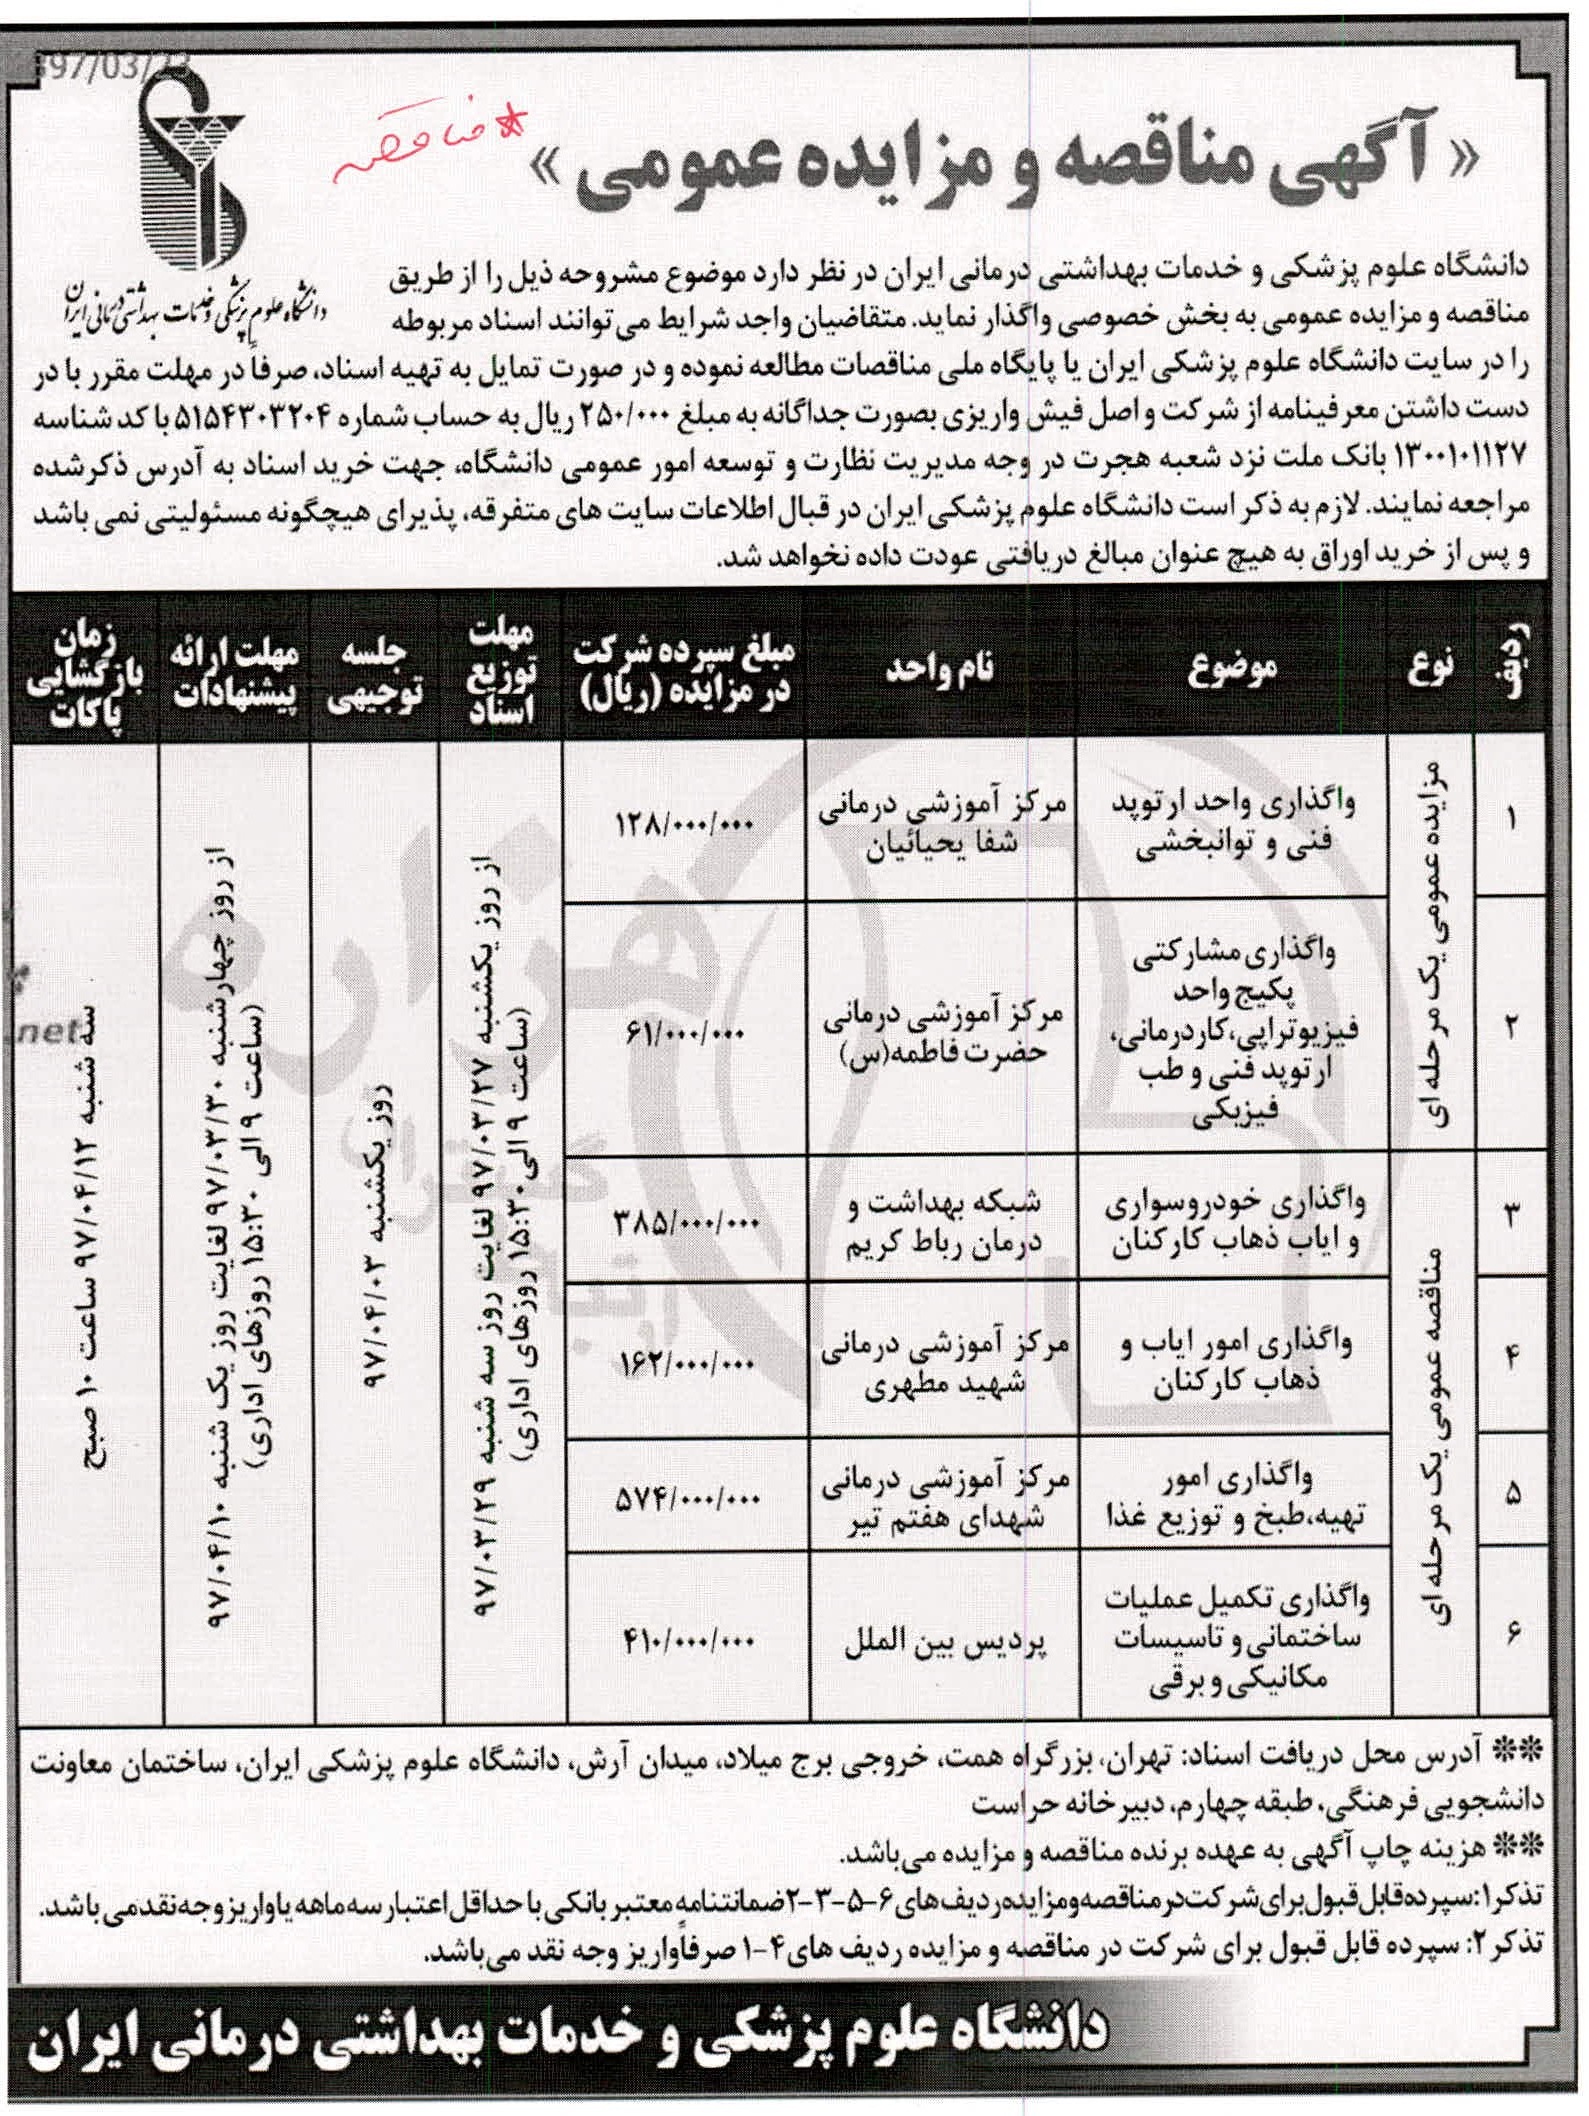 397/03/23
« آگهی مناقصه و مزایده عمومی »
* مناقصه
دانشگاه علوم پزشکی و خدمات بهداشتی درمانی ایران
دانشگاه علوم پزشکی و خدمات بهداشتی درمانی ایران در نظر دارد موضوع مشروحه ذیل را از طریق
مناقصه و مزایده عمومی به بخش خصوصی واگذار نماید. متقاضیان واجد شرایط می توانند اسناد مربوطه
را در سایت دانشگاه علوم پزشکی ایران یا پایگاه ملی مناقصات مطالعه نموده و در صورت تمایل به تهیه اسناد، صرفاً در مهلت مقرر با در
دست داشتن معرفینامه از شرکت و اصل فیش واریزی بصورت جداگانه به مبلغ ۲۵۰/۰۰۰ ریال به حساب شماره ۵۱۵۴۳۰۳۲۰۴ با کد شناسه
۱۳۰۰۱۰۱۱۲۷ بانک ملت نزد شعبه هجرت در وجه مدیریت نظارت و توسعه امور عمومی دانشگاه، جهت خرید اسناد به آدرس ذکر شده
مراجعه نمایند. لازم به ذکر است دانشگاه علوم پزشکی ایران در قبال اطلاعات سایت های متفرقه، پذیرای هیچگونه مسئولیتی نمی باشد
و پس از خرید اوراق به هیچ عنوان مبالغ دریافتی عودت داده نخواهد شد.
ردیف
نوع
موضوع
نام واحد
مبلغ سپرده شرکت
در مزایده (ریال)
مهلت
توزیع
اسناد
جلسه
توجیهی
مهلت ارائه
پیشنهادات
زمان
بازگشایی
پاکات
۱
مزایده عمومی یک مرحله ای
واگذاری واحد ارتوپد
فنی و توانبخشی
مرکز آموزشی درمانی
شفا یحیائیان
۱۲۸/۰۰۰/۰۰۰
از روز یکشنبه ۹۷/۰۳/۲۷ لغایت روز سه شنبه ۹۷/۰۳/۲۹
(ساعت ۹ الی ۱۵:۳۰ روزهای اداری)
روز یکشنبه ۹۷/۰۴/۰۳
از روز چهارشنبه ۹۷/۰۳/۳۰ لغایت روز یک شنبه ۹۷/۰۴/۱۰
(ساعت ۹ الی ۱۵:۳۰ روزهای اداری)
سه شنبه ۹۷/۰۴/۱۲ ساعت ۱۰ صبح
۲
واگذاری مشارکتی
پکیج واحد
فیزیوتراپی،کاردرمانی،
ارتوپد فنی و طب
فیزیکی
مرکز آموزشی درمانی
حضرت فاطمه(س)
۶۱/۰۰۰/۰۰۰
۳
مناقصه عمومی یک مرحله ای
واگذاری خودروسواری
و ایاب ذهاب کارکنان
شبکه بهداشت و
درمان رباط کریم
۳۸۵/۰۰۰/۰۰۰
۴
واگذاری امور ایاب و
ذهاب کارکنان
مرکز آموزشی درمانی
شهید مطهری
۱۶۲/۰۰۰/۰۰۰
۵
واگذاری امور
تهیه،طبخ و توزیع غذا
مرکز آموزشی درمانی
شهدای هفتم تیر
۵۷۴/۰۰۰/۰۰۰
۶
واگذاری تکمیل عملیات
ساختمانی و تاسیسات
مکانیکی و برقی
پردیس بین الملل
۴۱۰/۰۰۰/۰۰۰
هزاره
.net
** آدرس محل دریافت اسناد: تهران، بزرگراه همت، خروجی برج میلاد، میدان آرش، دانشگاه علوم پزشکی ایران، ساختمان معاونت
دانشجویی فرهنگی، طبقه چهارم، دبیرخانه حراست
** هزینه چاپ آگهی به عهده برنده مناقصه و مزایده می باشد.
تذکر۱:سپرده قابل قبول برای شرکت در مناقصه و مزایده ردیف های ۶-۵-۳-۲ ضمانتنامه معتبر بانکی با حداقل اعتبار سه ماهه یا واریز وجه نقد می باشد.
تذکر ۲: سپرده قابل قبول برای شرکت در مناقصه و مزایده ردیف های ۴-۱ صرفاً واریز وجه نقد می باشد.
دانشگاه علوم پزشکی و خدمات بهداشتی درمانی ایران